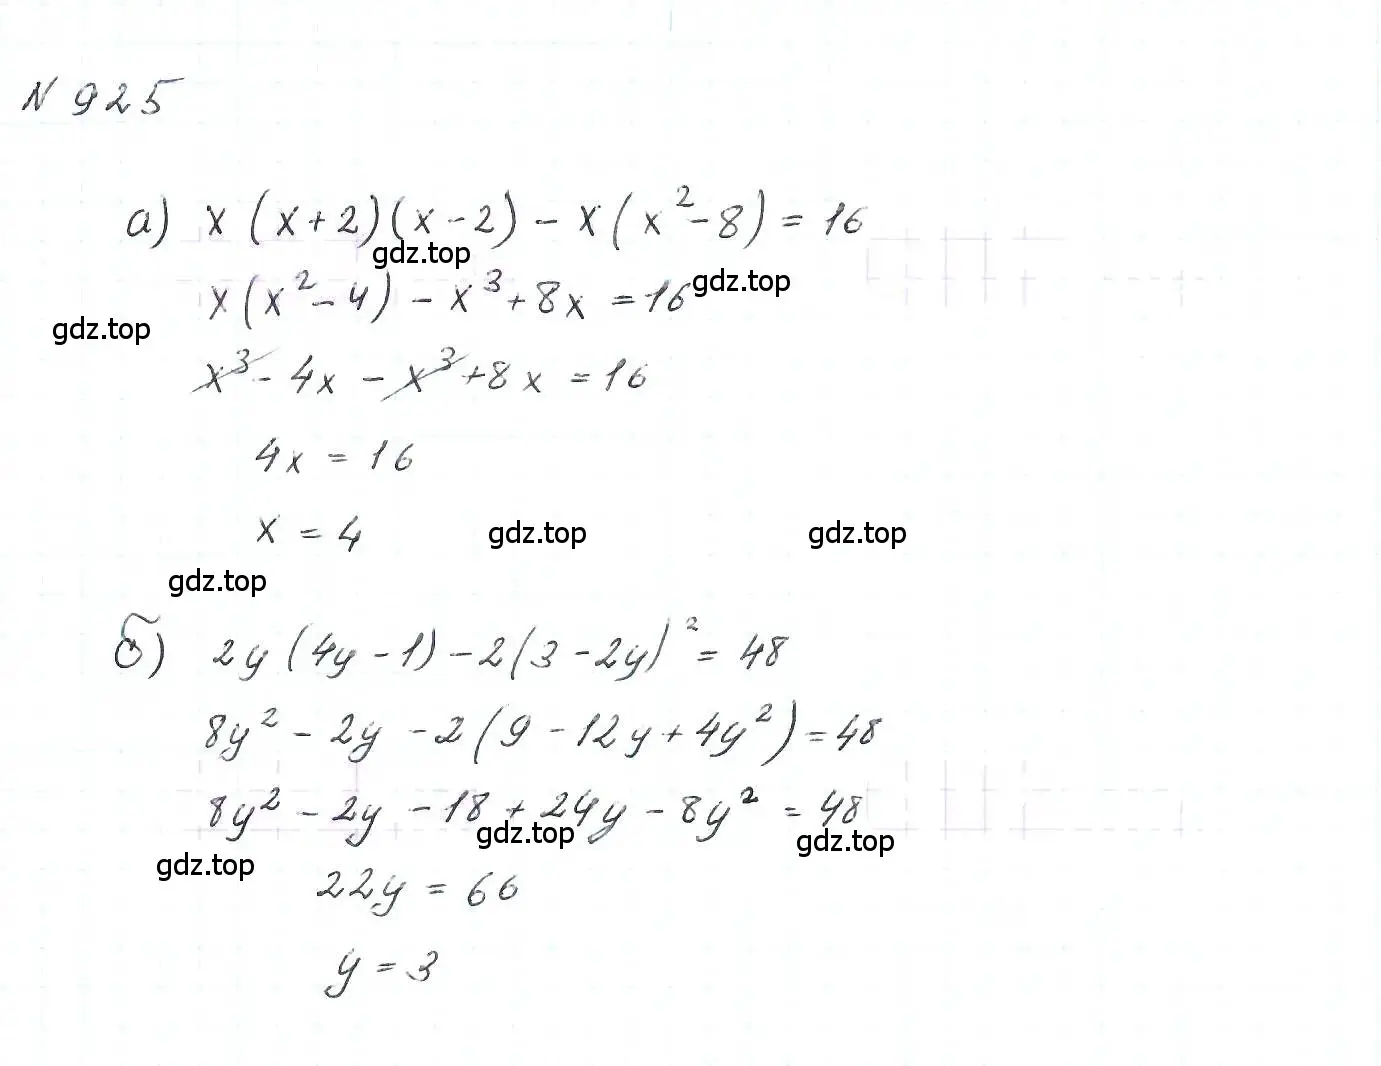 N 925
а) x (x+2)(x-2) - x(x²-8) = 16
gdz.top
x(x²-4) - x³+8x = 16 gdz.top
gdz.top
x³ - 4x - x³ + 8x = 16
4x = 16
x = 4 gdz.top gdz.top
gdz.top
б) 2y(4y-1) - 2(3-2y)² = 48
8y² - 2y - 2(9-12y+4y²) = 48
8y² - 2y - 18 + 24y - 8y² = 48
gdz.top gdz.top
gdz.top
22y = 66
y = 3